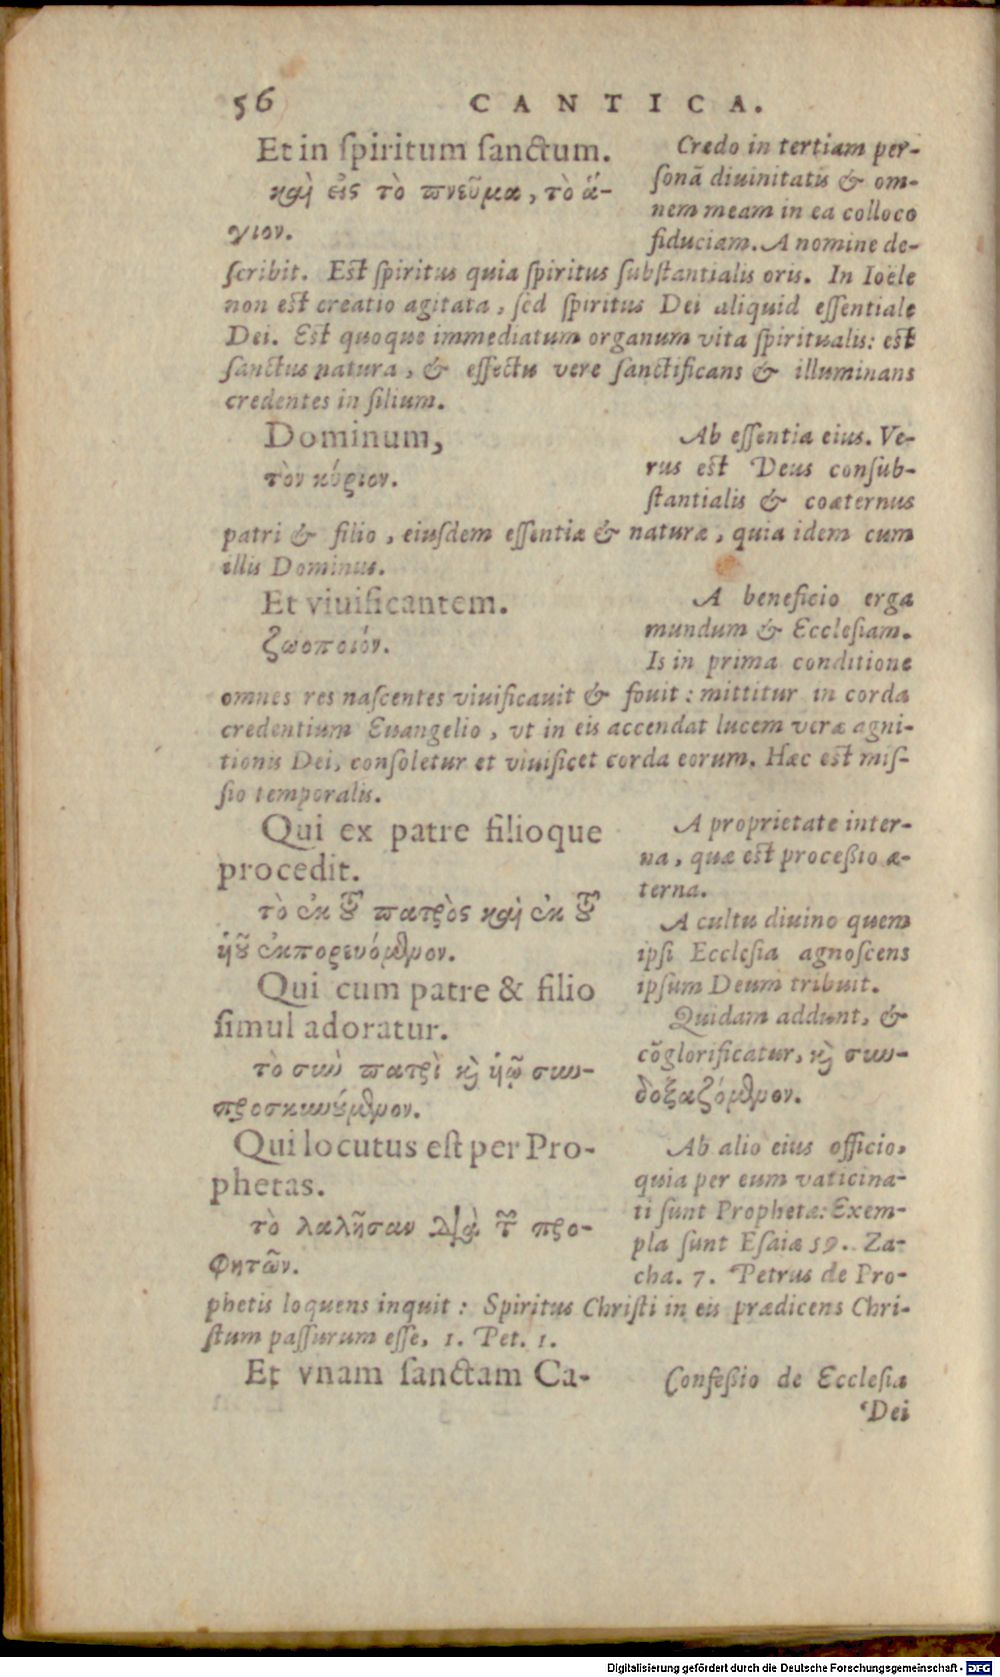 56 CANTICA.
Et in ſpiritum ſanctum.
καὶ εἰς τὸ πνεῦμα, τὸ ἅ-
γιον.
Credo in tertiam per-
ſonã diuinitatis & om-
nem meam in ea colloco
fiduciam. A nomine de-
ſcribit. Est ſpiritus quia ſpiritus ſubſtantialis oris. In Ioële
non est creatio agitata, ſed ſpiritus Dei aliquid eſſentiale
Dei. Est quoque immediatum organum vita ſpiritualis: est
ſanctus natura, & effectu vere ſanctificans & illuminans
credentes in filium.
Dominum,
τὸν κύριον.
Ab eſſentia eius. Ve-
rus est Deus conſub-
ſtantialis & coæternus
patri & filio, eiuſdem eſſentiæ & naturæ, quia idem cum
illis Dominus.
Et viuificantem.
ζωοποιόν.
A beneficio erga
mundum & Eccleſiam.
Is in prima conditione
omnes res naſcentes viuificauit & fouit: mittitur in corda
credentium Euangelio, vt in eis accendat lucem veræ agni-
tionis Dei, conſoletur et viuificet corda eorum. Hæc est miſ-
ſio temporalis.
Qui ex patre filioque
procedit.
τὸ ἐκ τοῦ πατρὸς καὶ ἐκ τοῦ
ὑοῦ ἐκπορευόμενον.
A proprietate inter-
na, quæ est proceßio æ-
terna.
Qui cum patre & filio
ſimul adoratur.
τὸ σὺν πατρὶ καὶ ὑῷ συν-
προσκυνούμενον.
A cultu diuino quem
ipſi Eccleſia agnoſcens
ipſum Deum tribuit.
Quidam addunt, &
cõglorificatur, καὶ συν-
δοξαζόμενον.
Qui locutus eſt per Pro-
phetas.
τὸ λαλῆσαν διὰ τῶν προ-
φητῶν.
Ab alio eius officio,
quia per eum vaticina-
ti ſunt Prophetæ: Exem-
pla ſunt Eſaiæ 59. Za-
cha. 7. Petrus de Pro-
phetis loquens inquit: Spiritus Chriſti in eis prædicens Chri-
ſtum paſſurum eſſe, 1. Pet. 1.
Et vnam ſanctam Ca-
Confeßio de Eccleſia
Dei
Digitalisierung gefördert durch die Deutsche Forschungsgemeinschaft - DFG